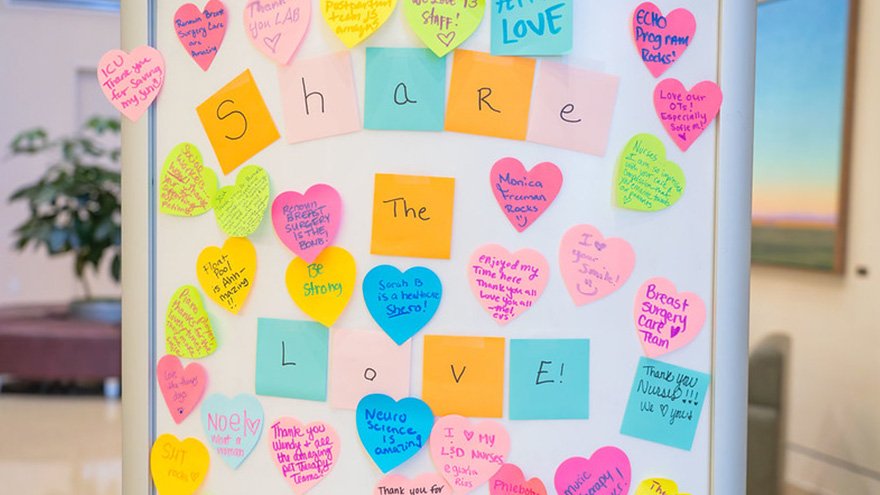 Renown
Breast
Surgery
Care are
Amazing
Thank you
LAB
Postpartum
team is amazing
We Love
Staff!
LOVE
ECHO
Program
Rocks!
ICU
Thank you
for Saving
my Son!
Love our
OTs!
Especially
Sofie M!
Share
Nurses
I am so
The
Monica
Freeman
Rocks
Renown
BREAST
SURGERY
IS THE
BOMB
I ♡
your
Smile!
Float
Pool
is Ahh-
mazing
Be
Strong
Sarah B
is a healthcare
Shero!
enjoyed my
Time here
Thank you all
Love you all
Breast
Surgery
Care ♡
Team
thanks for the
LOVE!
Love
the things
Thank you
Nurses!!!
We ♡ you!
NOEL ♡
What a
woman
Neuro
Science
is
amazing
Thank you
Wendy + all
the amazing
PT therapy
Teams
I ♡ my
L&D NURSES
SHT
rocks
Thank you for
Phlebo
Music
Therapy!
The